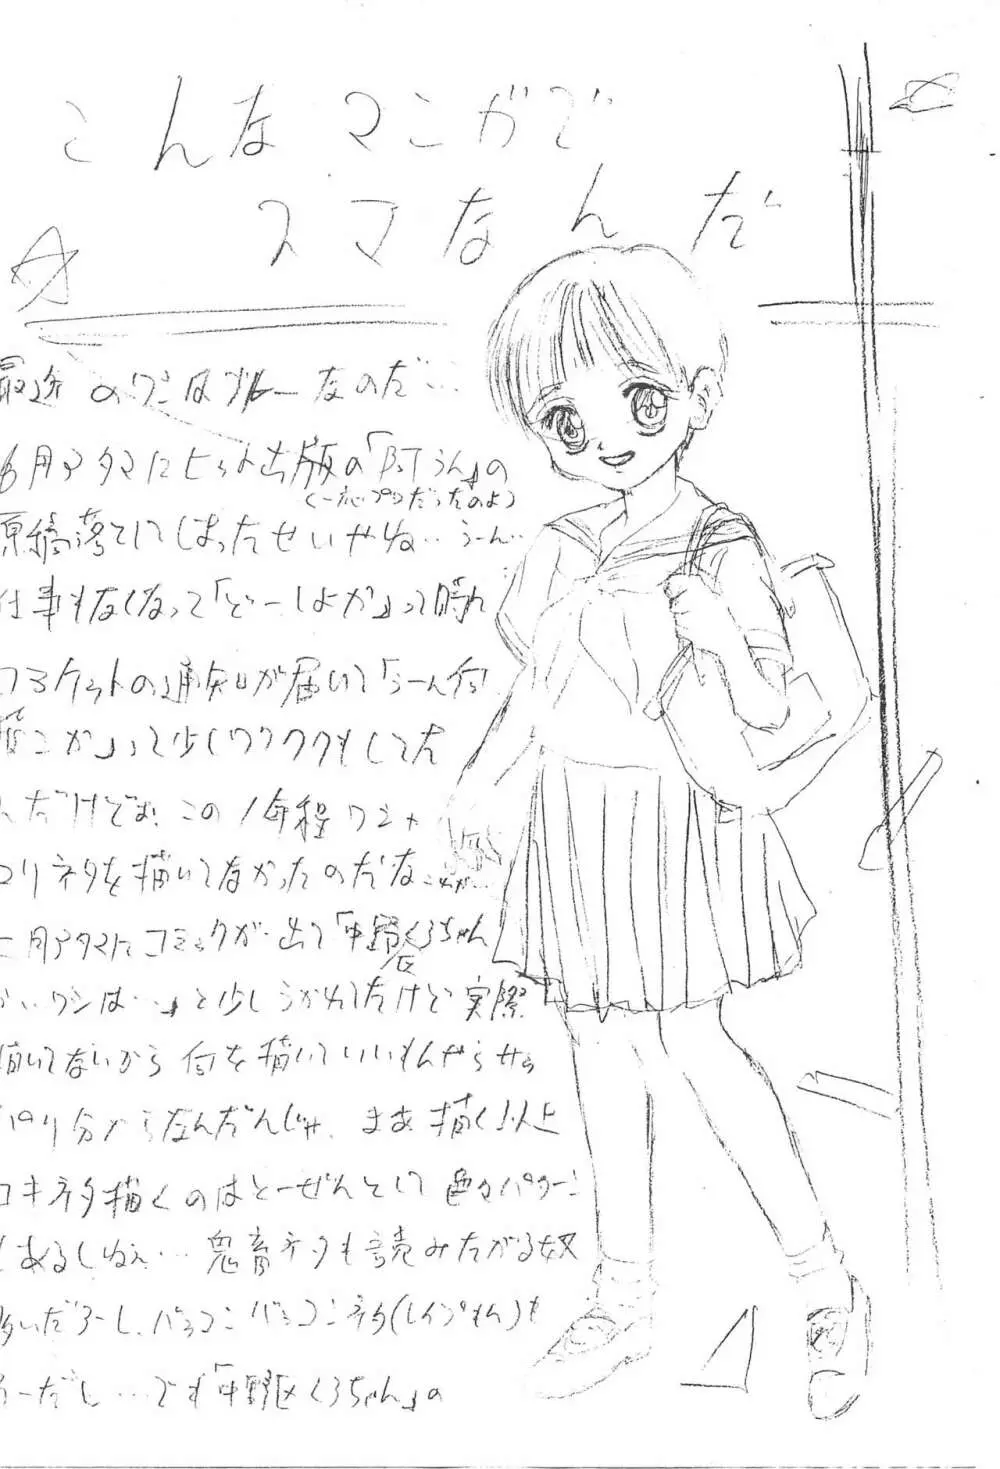 こんなマンガで
スマなんだ
最近のワシはブルーなのだ…
6月アタマにヒット出版の「阿うん」の
(一応プロだったのよ)
原稿落としてしまったせいやね…うーん…
仕事もなくなって「どーしよか」って時に
コミケットの通知が届いて「うーん何
描こか」って少しワクワクもしてた
んだけども、この1年程ワシャ
ロリネタを描いてなかったのだな
二月アタマにコミックが出て「中野区くろちゃん
ワシは…」と少しうかれてたけど実際
描いてないから何を描いていいもんやらサ
分からなんだんじゃ。まあ描く以上
ネタ描くのはとーぜんとして色々パターン
もあるしねぇ…鬼畜ネタも読みたがる奴
多いだろーし、バコンバコンネタ(レイプもん)も
そーだし…でも「中野区くろちゃん」の